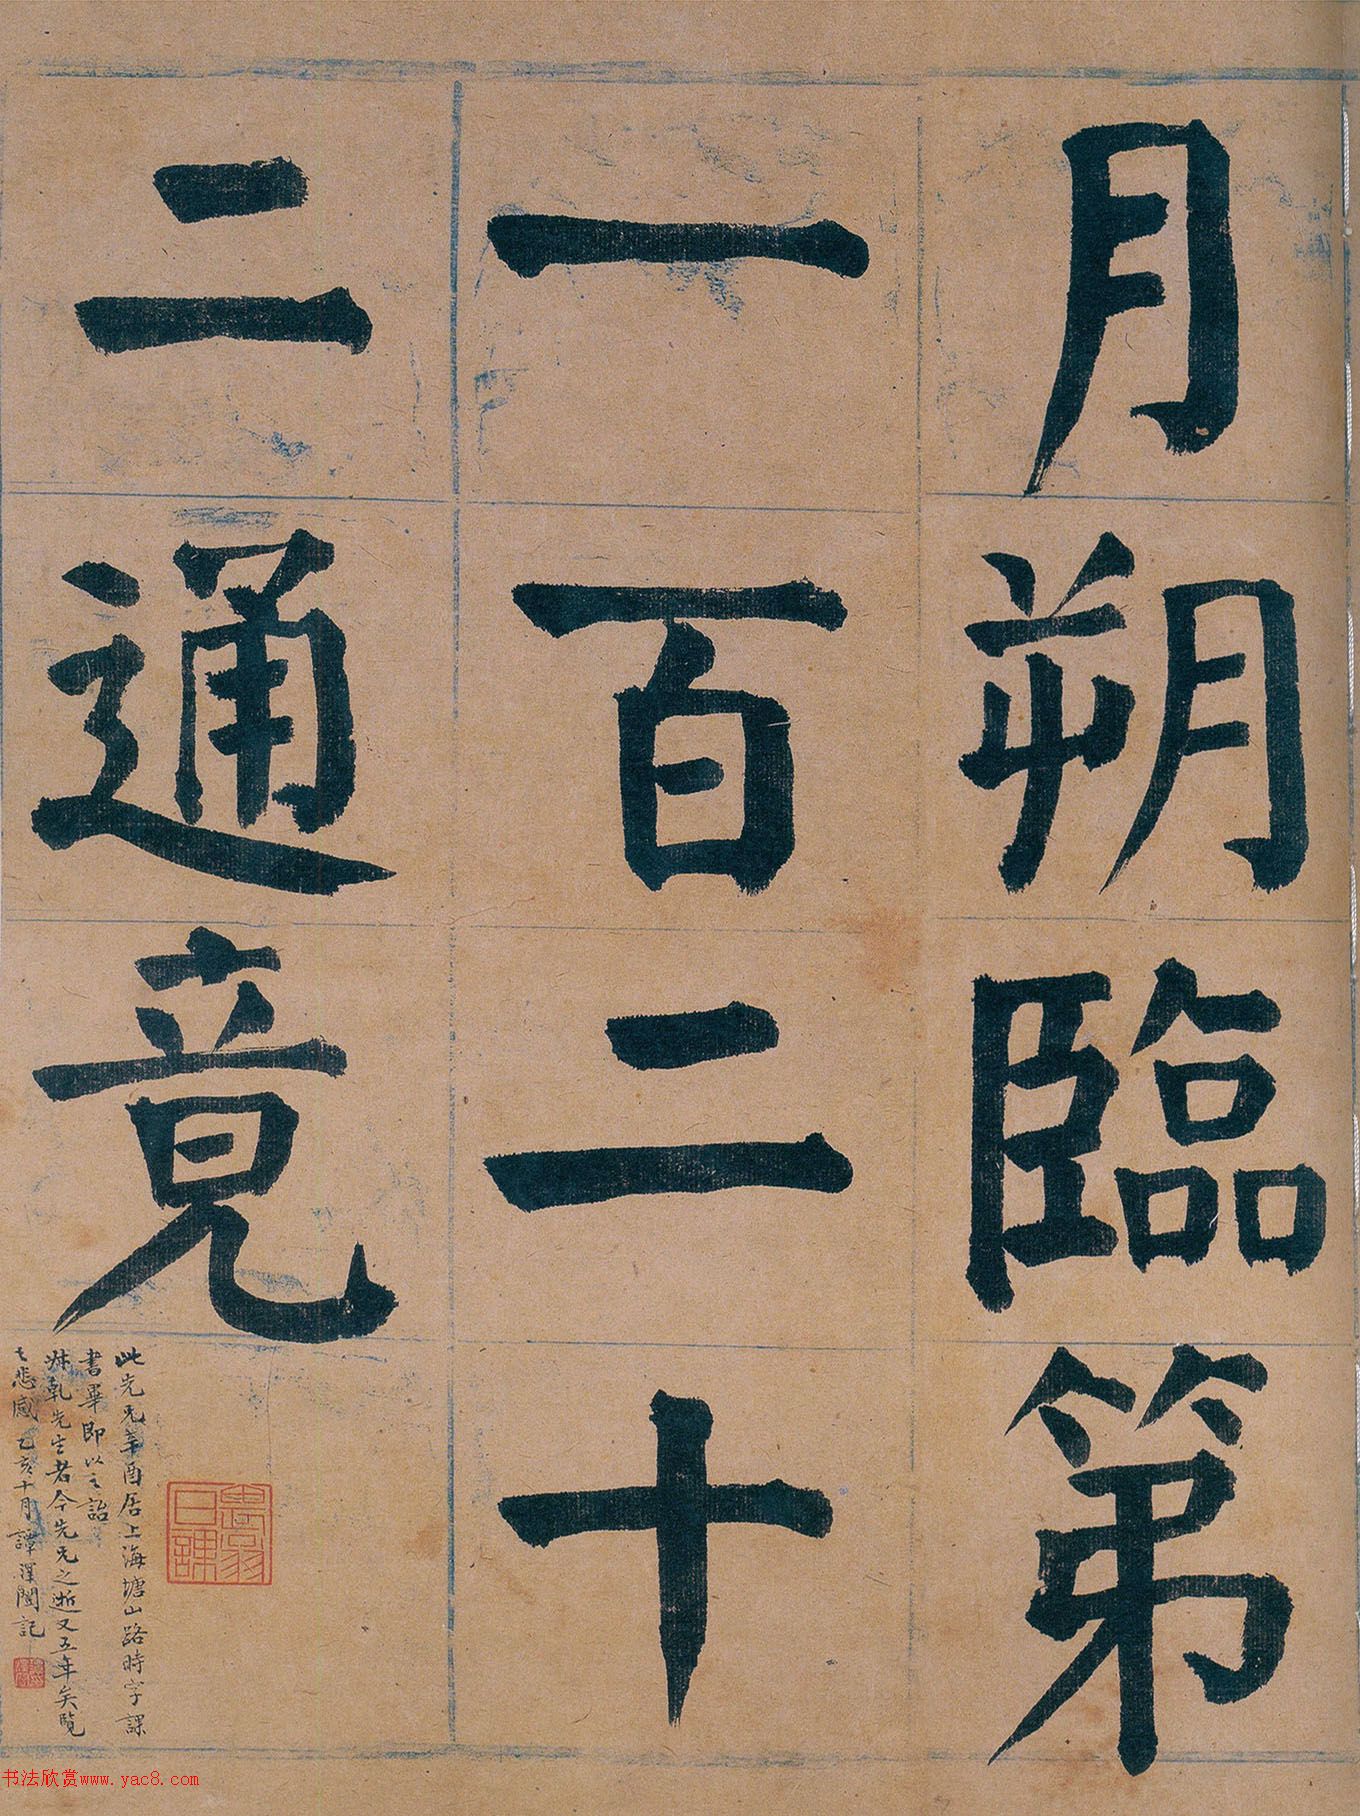 月朔臨第
一百二十
二通竟
此先兄辛酉居上海塘山路時字課
書畢即以之詒
叔乾先生者今先兄之逝又五年矣覽
之悲感乙亥十月譚澤闓記
書法欣赏www.yac8.com